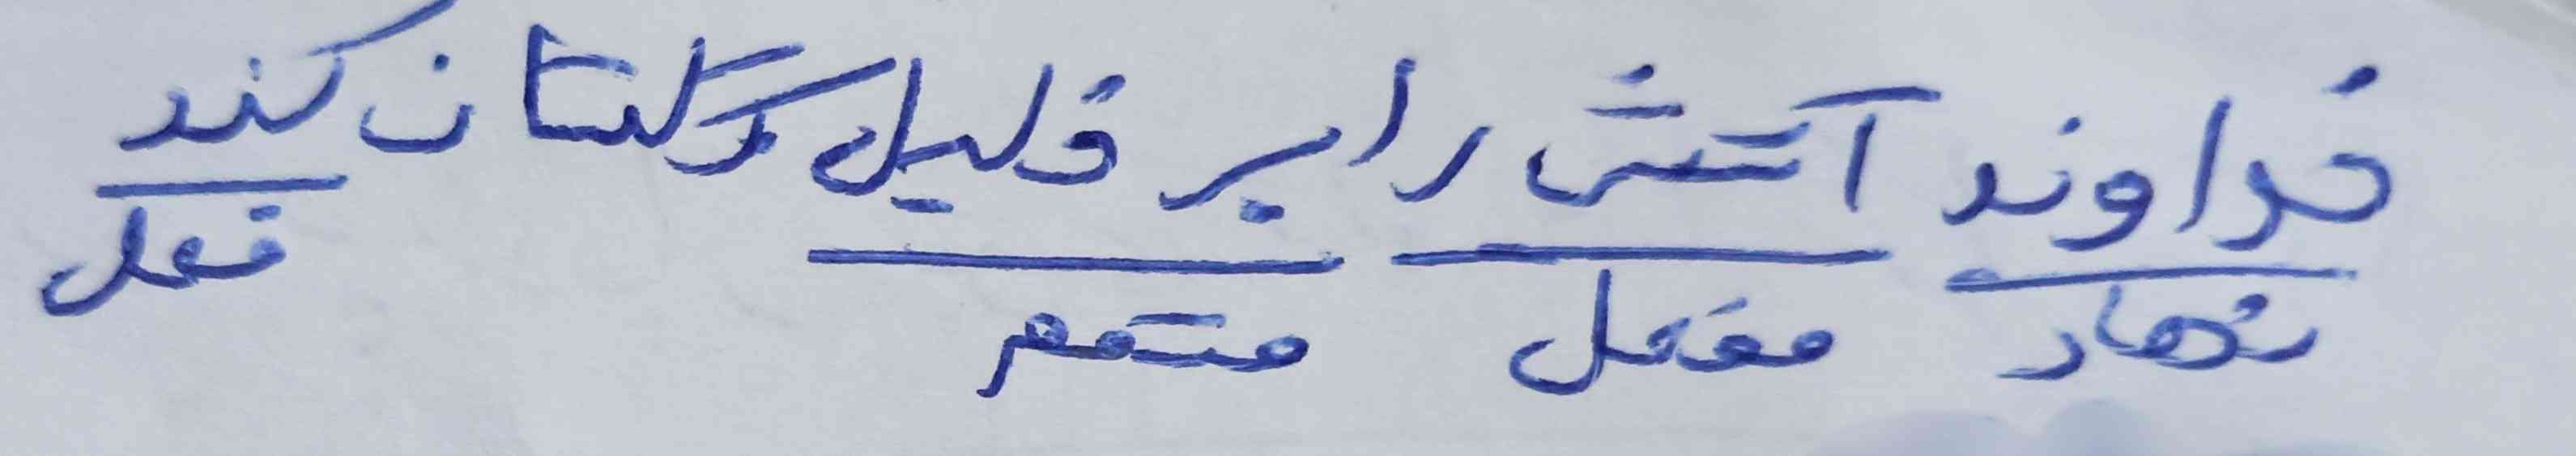 خداوند آتش را بر خلیل گلستان کند
نهاد مفعول متمم فعل